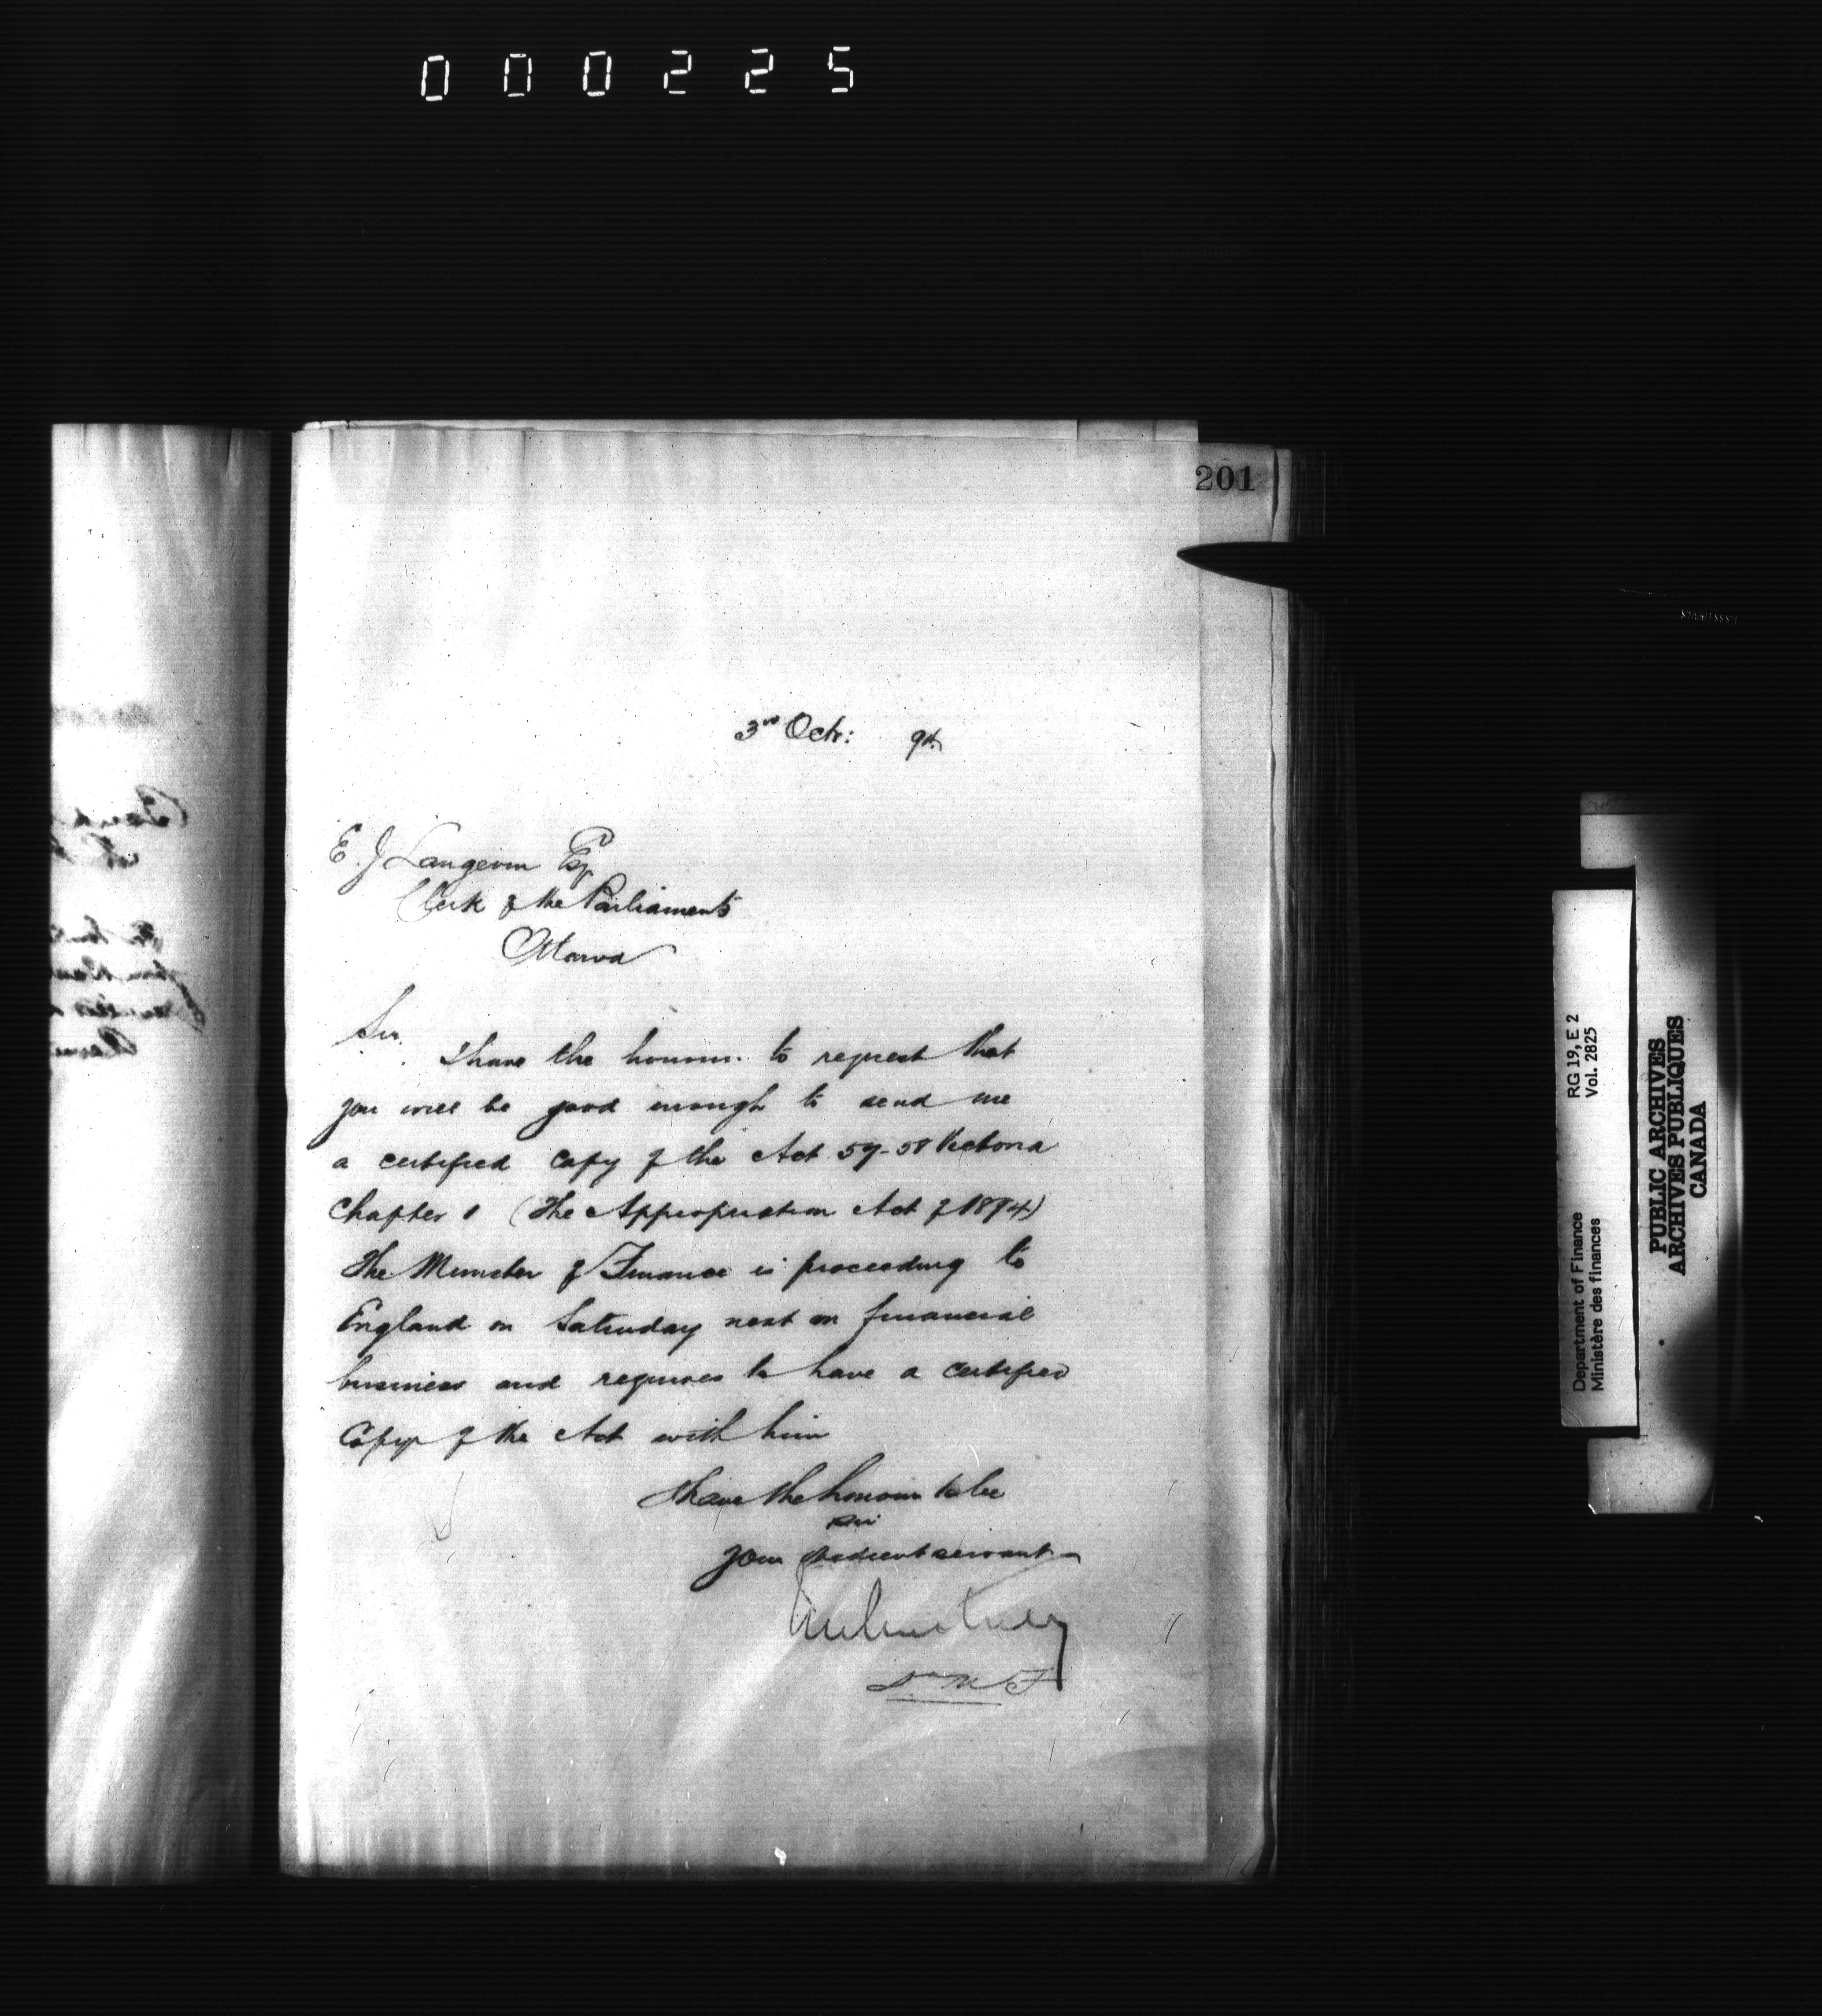 000225
201
3rd Octr: 94
E. J Langevin Esq
Clerk of the Parliaments
Ottawa
Sir,
I have the honour to request that
you will be good enough to send me
a certified copy of the Act 57-58 Victoria
Chapter 1 (The Appropriation Act of 1894)
The Minister of Finance is proceeding to
England on Saturday next on financial
business and requires to have a certified
Copy of the Act with him
I have the honour to be
Sir
Your obedient servant
D M F
RG 19, E 2
Vol. 2825
Department of Finance
Ministère des finances
PUBLIC ARCHIVES
ARCHIVES PUBLIQUES
CANADA